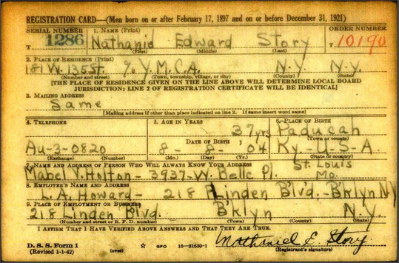 REGISTRATION CARD—(Men born on or after February 17, 1897 and on or before December 31, 1921)
SERIAL NUMBER 1. NAME (Print) ORDER NUMBER
1286 Nathanie Edward Story 10190
(First) (Middle) (Last)
2. PLACE OF RESIDENCE (Print)
181 W. 135 St. % Y.M.C.A. N.Y. N.Y.
(Number and street) (Town, township, village, or city) (County) (State)
[THE PLACE OF RESIDENCE GIVEN ON THE LINE ABOVE WILL DETERMINE LOCAL BOARD
JURISDICTION; LINE 2 OF REGISTRATION CERTIFICATE WILL BE IDENTICAL]
3. MAILING ADDRESS
Same
[Mailing address if other than place indicated on line 2. If same insert word same]
4. TELEPHONE 5. AGE IN YEARS 6. PLACE OF BIRTH
37 yrs Paducah
DATE OF BIRTH
AU-3-0820 8 - 8 - 04 Ky - U-S-A
(Exchange) (Number) (Mo.) (Day) (Yr.) (State or country)
7. NAME AND ADDRESS OF PERSON WHO WILL ALWAYS KNOW YOUR ADDRESS St. Louis
Mabel Holton - 3937-W. Belle Pl. Mo.
8. EMPLOYER'S NAME AND ADDRESS
L.A. Howard - 218 Linden Blvd. - Bklyn NY
9. PLACE OF EMPLOYMENT OR BUSINESS
218 Linden Blvd. B'klyn N.Y.
(Number and street or R. F. D. number) (Town) (County) (State)
I AFFIRM THAT I HAVE VERIFIED ABOVE ANSWERS AND THAT THEY ARE TRUE.
D. S. S. Form 1
(Revised 1-1-42) (over) Nathaniel E. Story
(Registrant's signature)